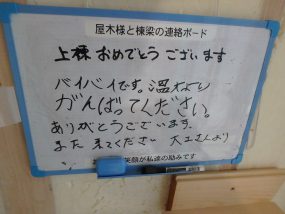 屋木様と棟梁の連絡ボード
上棟 おめでとう ございます
バイバイです。温
がんばってください。
ありがとうございます。
また 来てください 大工さんより
笑顔が私達の励みです